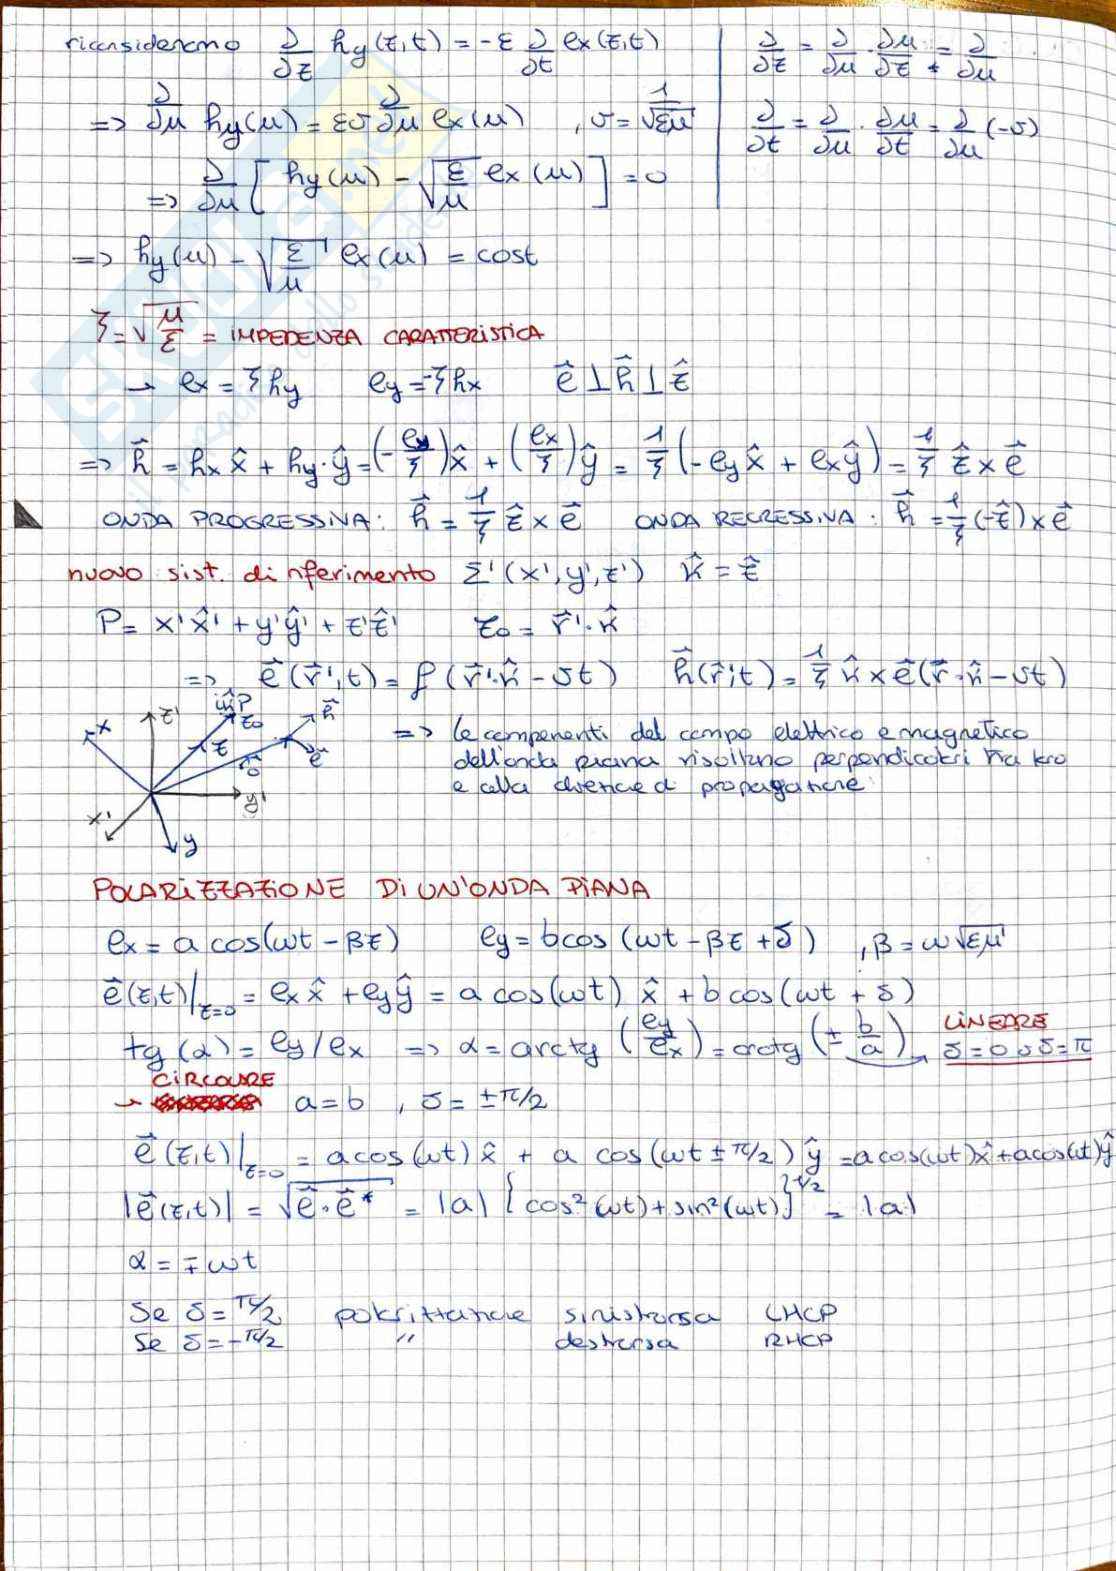 riconsideriamo ∂/∂z hy(z,t) = -ε ∂/∂t ex(z,t)
∂/∂z = ∂/∂u · ∂u/∂z = ∂/∂u
=> ∂/∂u hy(u) = εv ∂/∂u ex(u) , v = 1/√εμ
∂/∂t = ∂/∂u · ∂u/∂t = ∂/∂u (-v)
=> ∂/∂u [ hy(u) - √(ε/μ) ex(u) ] = 0
=> hy(u) - √(ε/μ) ex(u) = cost
ζ = √(μ/ε) = IMPEDENZA CARATTERISTICA
→ ex = ζ hy ey = -ζ hx e⃗ ⊥ h⃗ ⊥ ẑ
=> h⃗ = hx x̂ + hy · ŷ = (- ey/ζ) x̂ + (ex/ζ) ŷ = 1/ζ (- ey x̂ + ex ŷ) = 1/ζ ẑ × e⃗
ONDA PROGRESSIVA: h⃗ = 1/ζ ẑ × e⃗ ONDA REGRESSIVA: h⃗ = 1/ζ (-ẑ) × e⃗
nuovo sist. di riferimento Σ'(x',y',z') k̂ = ẑ
P = x'x̂' + y'ŷ' + z'ẑ' z0 = r⃗'· k̂
=> e⃗ (r⃗',t) = f (r⃗'·k̂ - vt) h⃗(r⃗',t) = 1/ζ k̂ × e⃗(r⃗·k̂ - vt)
x z' P z0 h⃗
z e⃗
y'
x' y
=> le componenti del campo elettrico e magnetico
dell'onda piana risultano perpendicolari tra loro
e alla direzione di propagazione
POLARIZZAZIONE DI UN'ONDA PIANA
ex = a cos(ωt - βz) ey = b cos (ωt - βz + δ) , β = ω√εμ
e⃗(z,t)|z=0 = ex x̂ + ey ŷ = a cos(ωt) x̂ + b cos(ωt + δ)
tg (α) = ey/ex => α = arctg (ey/ex) = arctg (± b/a) LINEARE
δ = 0 o δ = π
CIRCOLARE
→ a = b , δ = ±π/2
e⃗ (z,t)|z=0 = a cos(ωt) x̂ + a cos(ωt ± π/2) ŷ = a cos(ωt) x̂ + a cos(ωt) ŷ
|e⃗(z,t)| = √e⃗·e⃗* = |a| {cos²(ωt) + sin²(ωt)}^1/2 = |a|
α = ∓ωt
Se δ = π/2 polarizzazione sinistrorsa LHCP
Se δ = -π/2 " destrorsa RHCP